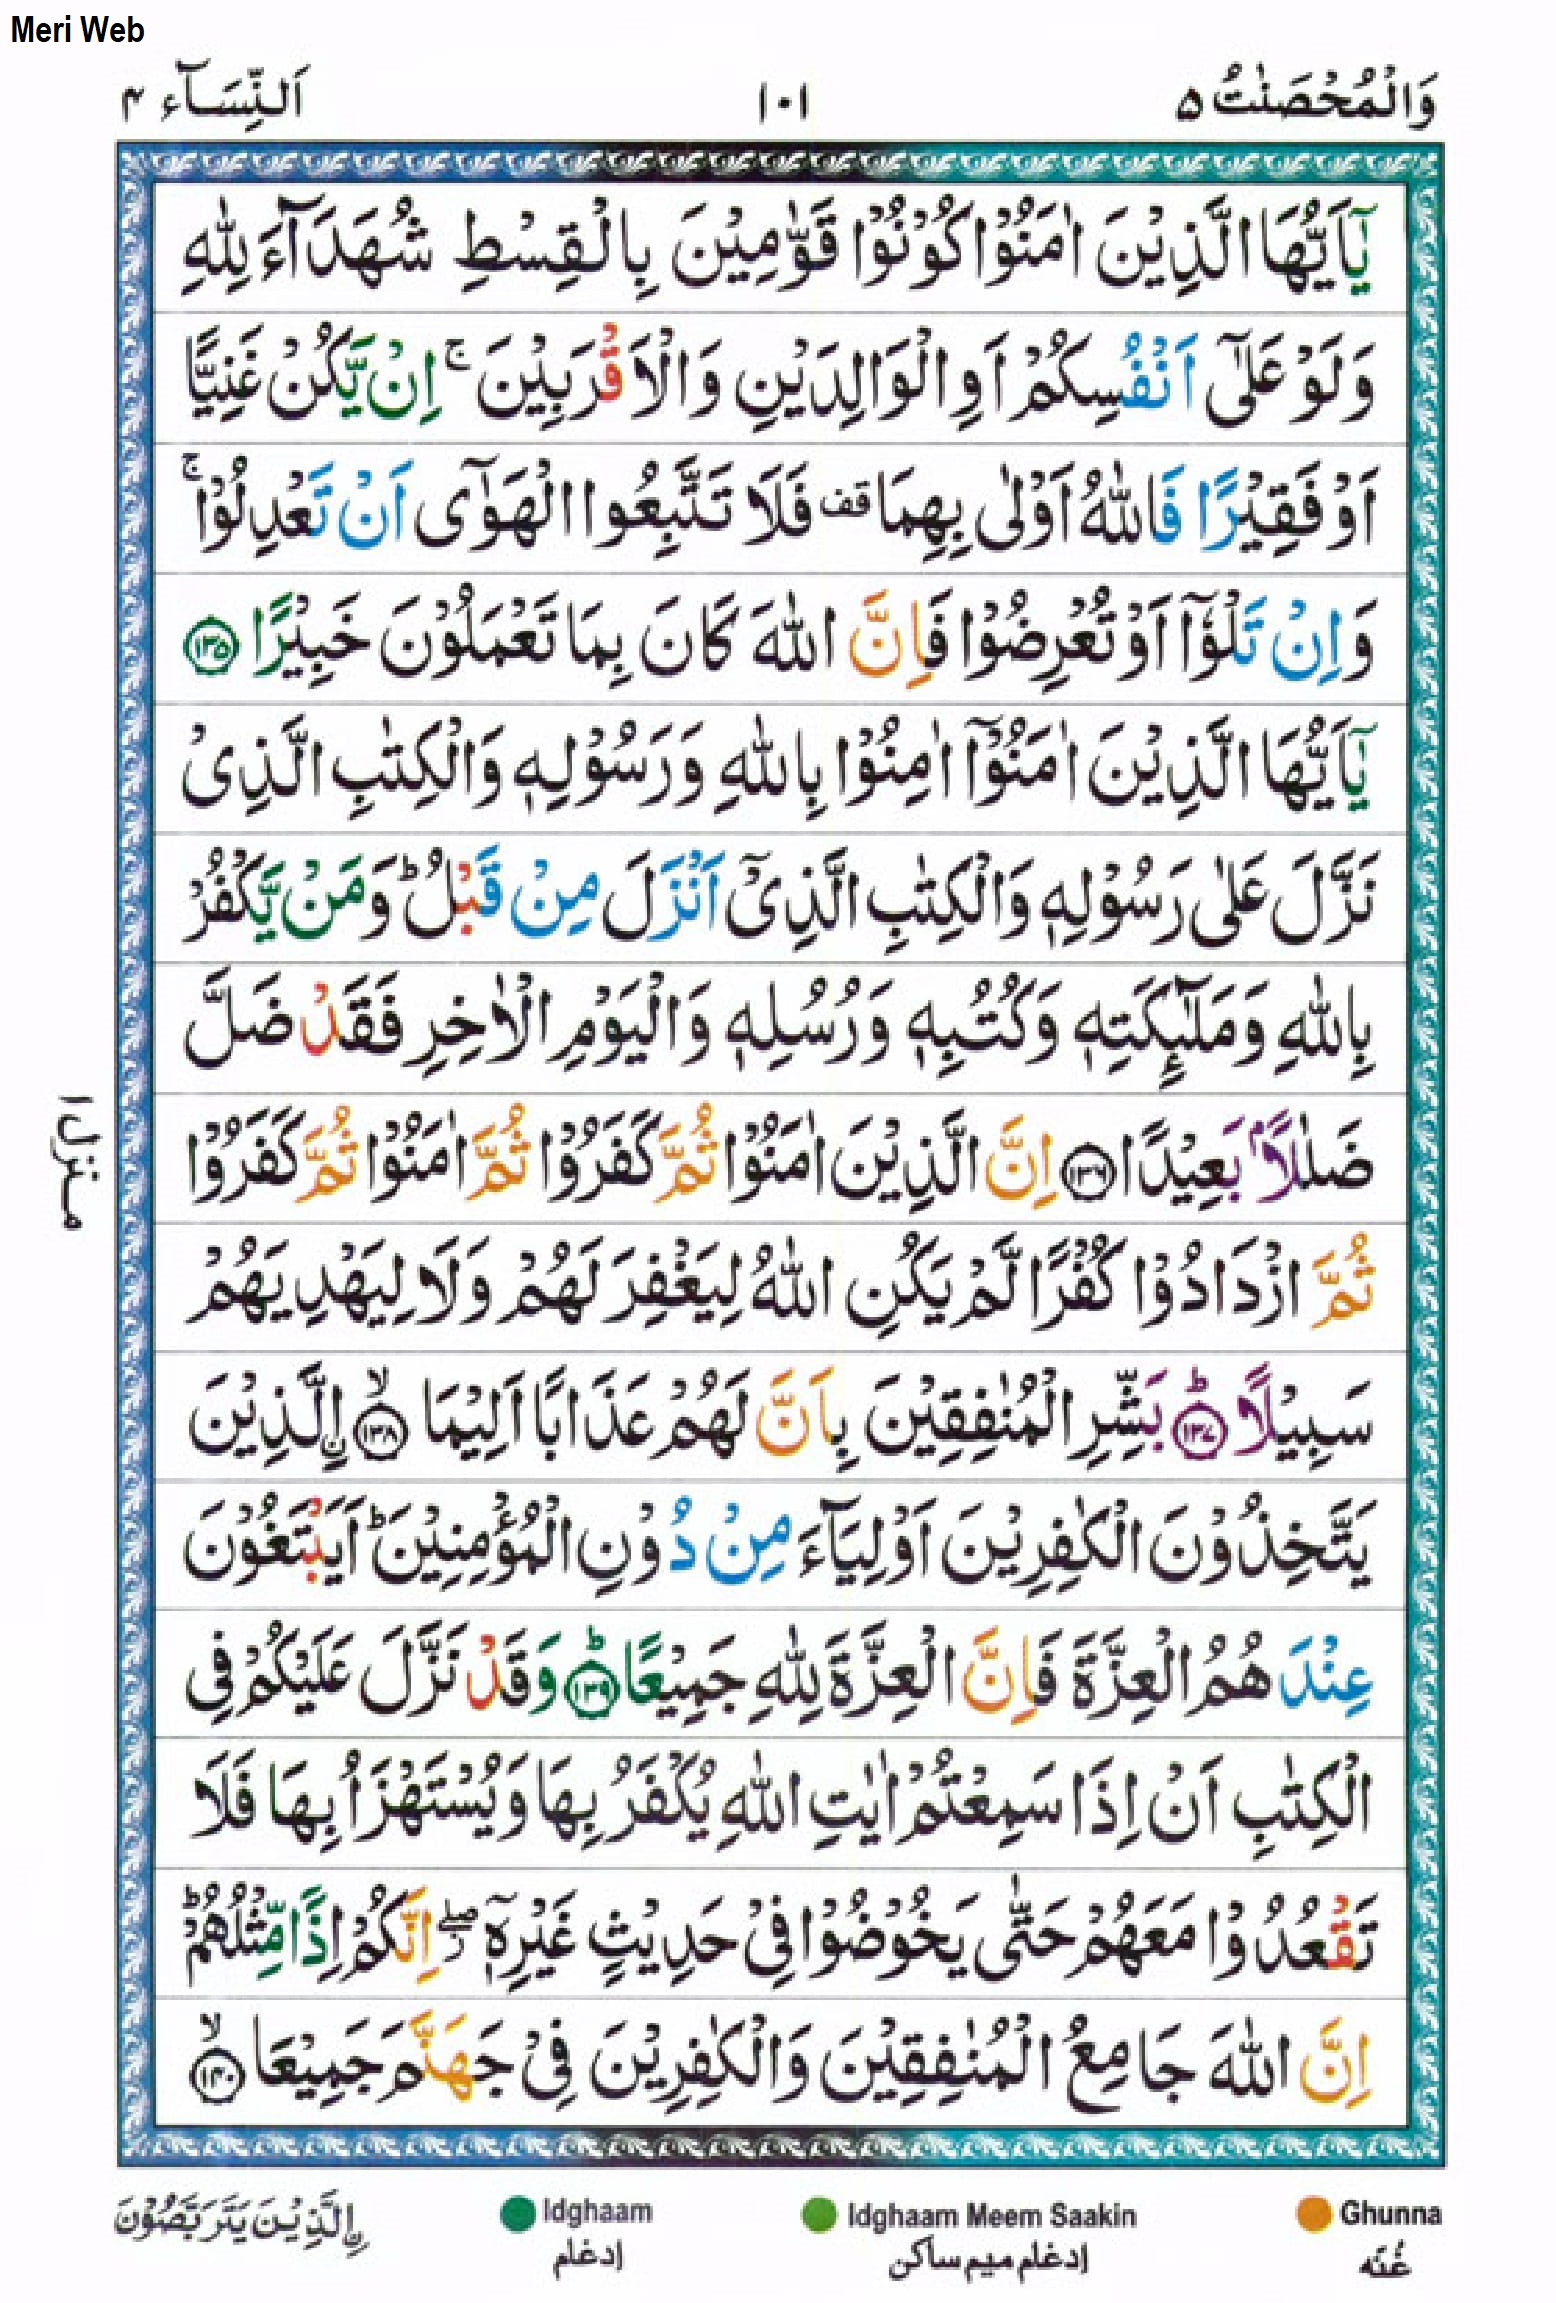 Meri Web
وَالْمُحْصَنٰتُ ۵
۱۰۱
اَلنِّسَآء ۴
يٰۤاَيُّهَا الَّذِيْنَ اٰمَنُوْا كُوْنُوْا قَوّٰمِيْنَ بِالْقِسْطِ شُهَدَآءَ لِلّٰهِ
وَلَوْ عَلٰۤى اَنْفُسِكُمْ اَوِ الْوَالِدَيْنِ وَالْاَقْرَبِيْنَ ۚ اِنْ يَّكُنْ غَنِيًّا
اَوْ فَقِيْرًا فَاللّٰهُ اَوْلٰى بِهِمَا قف فَلَا تَتَّبِعُوا الْهَوٰۤى اَنْ تَعْدِلُوْا ۚ
وَاِنْ تَلْوٗۤا اَوْ تُعْرِضُوْا فَاِنَّ اللّٰهَ كَانَ بِمَا تَعْمَلُوْنَ خَبِيْرًا ۝۱۳۵
يٰۤاَيُّهَا الَّذِيْنَ اٰمَنُوْۤا اٰمِنُوْا بِاللّٰهِ وَرَسُوْلِهٖ وَالْكِتٰبِ الَّذِىْ
نَزَّلَ عَلٰى رَسُوْلِهٖ وَالْكِتٰبِ الَّذِىْۤ اَنْزَلَ مِنْ قَبْلُ ؕ وَمَنْ يَّكْفُرْ
بِاللّٰهِ وَمَلٰٓئِكَتِهٖ وَكُتُبِهٖ وَرُسُلِهٖ وَالْيَوْمِ الْاٰخِرِ فَقَدْ ضَلَّ
ضَلٰلًاۢ بَعِيْدًا ۝۱۳۶ اِنَّ الَّذِيْنَ اٰمَنُوْا ثُمَّ كَفَرُوْا ثُمَّ اٰمَنُوْا ثُمَّ كَفَرُوْا
ثُمَّ ازْدَادُوْا كُفْرًا لَّمْ يَكُنِ اللّٰهُ لِيَغْفِرَ لَهُمْ وَلَا لِيَهْدِيَهُمْ
سَبِيْلًا ؕ۝۱۳۷ بَشِّرِ الْمُنٰفِقِيْنَ بِاَنَّ لَهُمْ عَذَابًا اَلِيْمَا ۙ۝۱۳۸ اۨلَّذِيْنَ
يَتَّخِذُوْنَ الْكٰفِرِيْنَ اَوْلِيَآءَ مِنْ دُوْنِ الْمُؤْمِنِيْنَ ؕ اَيَبْتَغُوْنَ
عِنْدَ هُمُ الْعِزَّةَ فَاِنَّ الْعِزَّةَ لِلّٰهِ جَمِيْعًا ؕ۝۱۳۹ وَقَدْ نَزَّلَ عَلَيْكُمْ فِى
الْكِتٰبِ اَنْ اِذَا سَمِعْتُمْ اٰيٰتِ اللّٰهِ يُكْفَرُ بِهَا وَيُسْتَهْزَاُ بِهَا فَلَا
تَقْعُدُوْا مَعَهُمْ حَتّٰى يَخُوْضُوْا فِىْ حَدِيْثٍ غَيْرِهٖۤ ۖ اِنَّكُمْ اِذًا مِّثْلُهُمْ ؕ
اِنَّ اللّٰهَ جَامِعُ الْمُنٰفِقِيْنَ وَالْكٰفِرِيْنَ فِىْ جَهَنَّمَ جَمِيْعَا ۙ۝۱۴۰
منزل ۱
اۨلَّذِيْنَ يَتَرَبَّصُوْنَ
Idghaam
ادغام
Idghaam Meem Saakin
ادغام میم ساکن
Ghunna
غُنّه